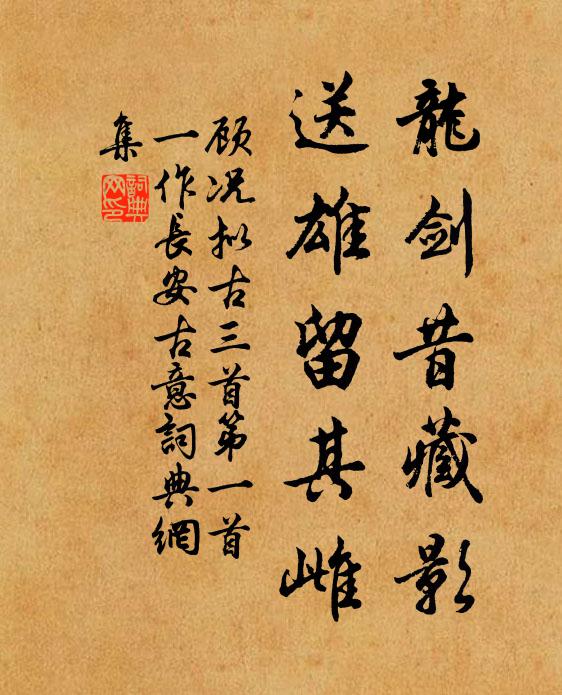 龍剑昔藏影
送雄留其雌
顾况拟古三首第一首
一作長安古意詞典網
集
詞典
网印